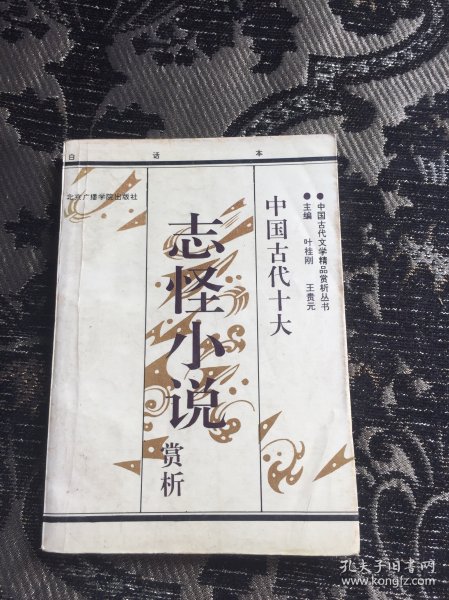 白话本
北京广播学院出版社
●中国古代文学精品赏析丛书
●主编 叶桂刚 王贵元
中国古代十大
志怪小说
赏析
孔夫子旧书网
www.kongfz.com